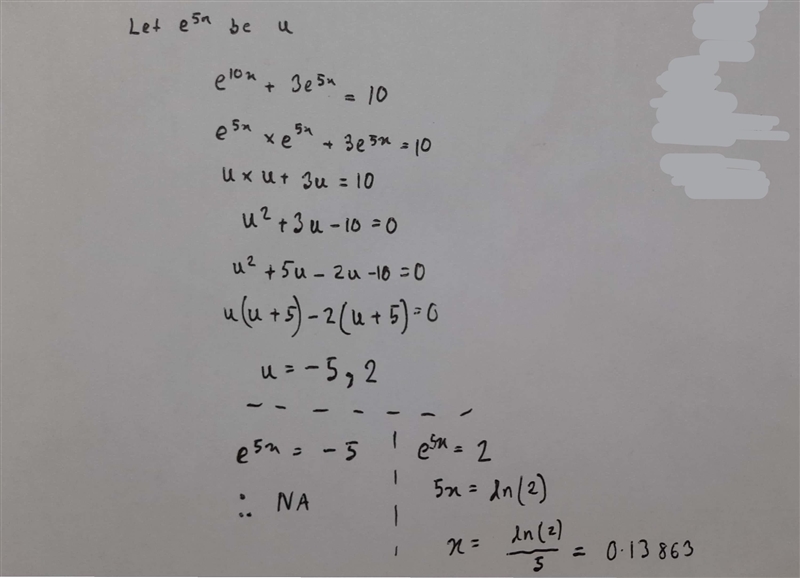 Let e^5x be u
e^10x + 3e^5x = 10
e^5x × e^5x + 3e^5x = 10
u × u + 3u = 10
u² + 3u - 10 = 0
u² + 5u - 2u - 10 = 0
u(u + 5) - 2(u + 5) = 0
u = -5, 2
e^5x = -5
∴ NA
e^5x = 2
5x = ln(2)
x = ln(2)/5 = 0.13863